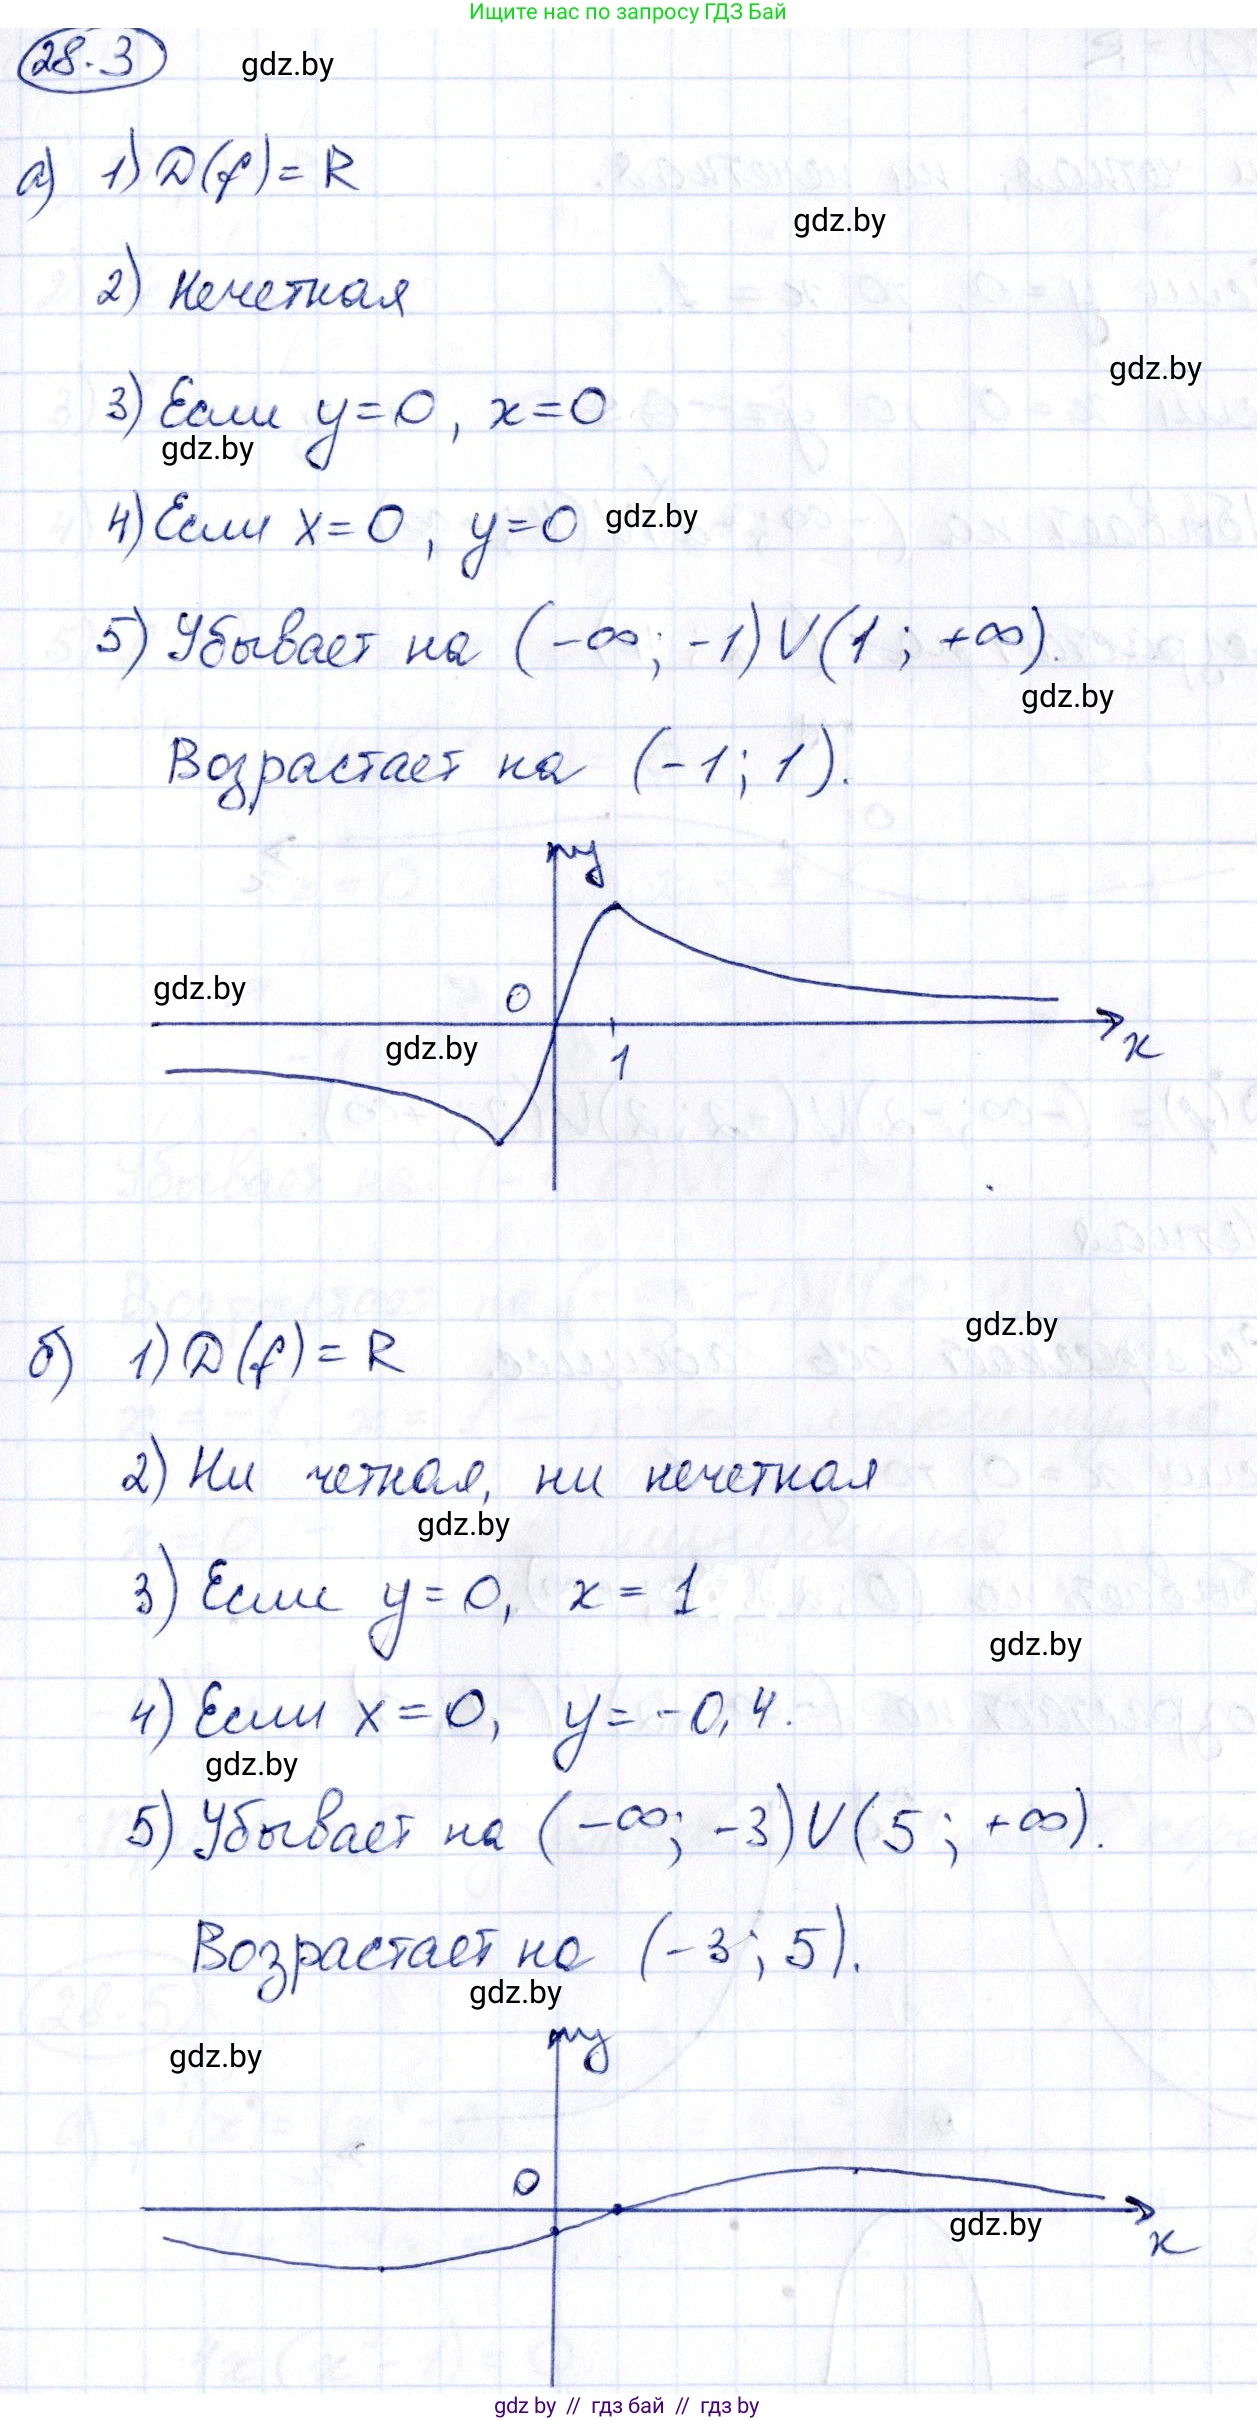 Ищите нас по запросу ГДЗ Бай
28.3 gdz.by
а) 1) D(f) = R
gdz.by
2) Нечетная
gdz.by
3) Если y=0, x=0
gdz.by
4) Если x=0, y=0 gdz.by
5) Убывает на (-∞; -1) ∪ (1; +∞).
gdz.by
Возрастает на (-1; 1).
y
gdz.by 0
gdz.by 1 x
gdz.by
б) 1) D(f) = R
2) Ни четная, ни нечетная
gdz.by
3) Если y=0, x=1
gdz.by
4) Если x=0, y=-0,4.
gdz.by
5) Убывает на (-∞; -3) ∪ (5; +∞).
Возрастает на (-3; 5).
gdz.by
y
gdz.by
0
gdz.by x
gdz by // гдз бай // гдз by